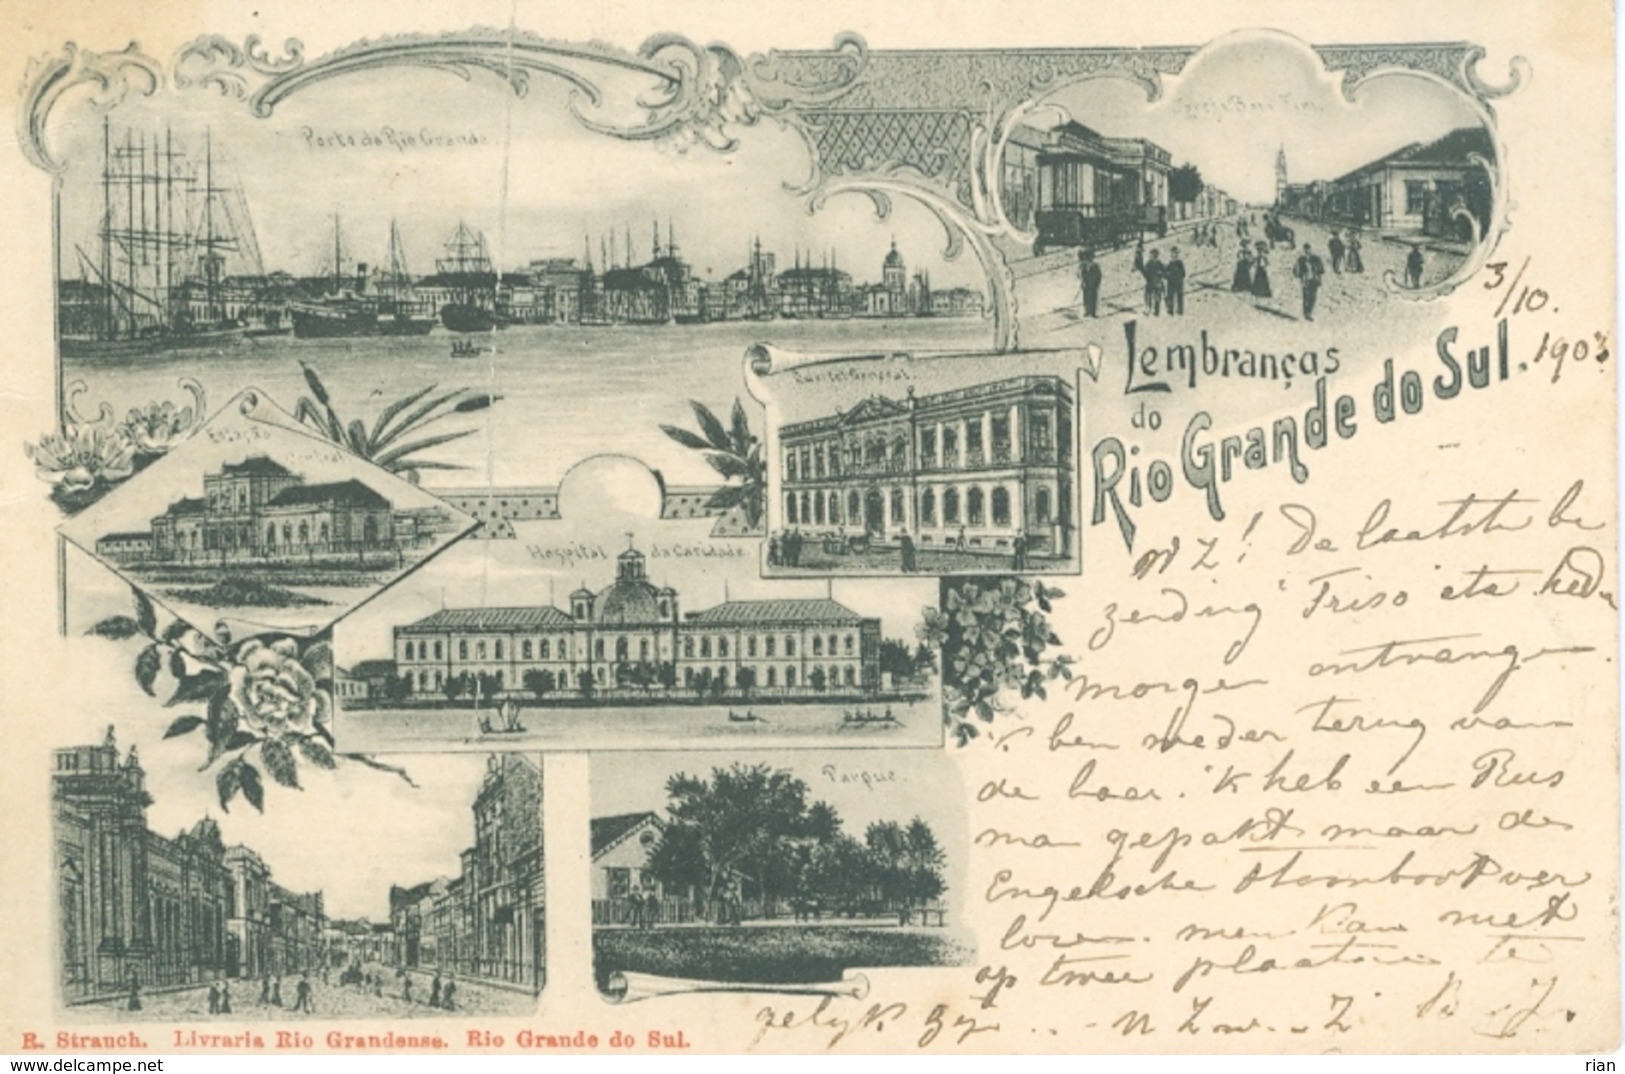 Porto do Rio Grande.
Igreja Bom Fim.
3/10.
1903
Lembranças
do
Rio Grande do Sul.
Quartel General.
Estação
Central
Hospital da Caridade
Parque.
W Z! De laatste be
zending "Friso" etz. heden
morgen ontvangen.
'k ben weder terug van
de baai. 'k heb een Rus
na gepakt maar de
Engelsche stoomboot ver
loren. men kan niet
op twee plaatsen te
gelijk zijn ..
R. Strauch. Livraria Rio Grandense. Rio Grande do Sul.
delcampe.net
rian